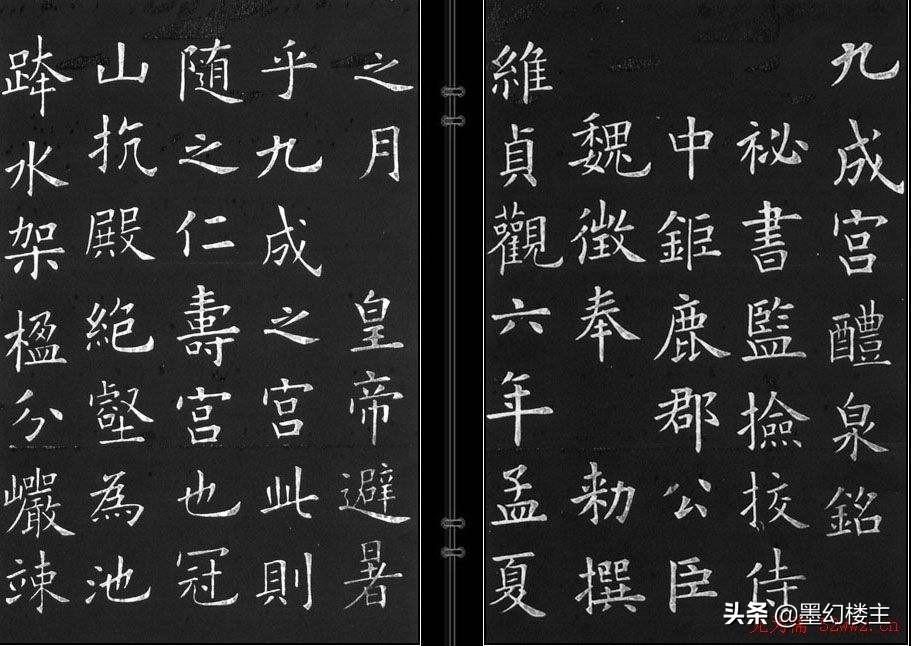 九成宫醴泉銘
祕書監撿挍侍
中鉅鹿郡公臣
魏徵奉 勑撰
維貞觀六年孟夏
之月 皇帝避暑
乎九成之宫此則
随之仁壽宫也冠
山抗殿絶壑為池
跨水架楹分巖竦
头条 @墨幻楼主